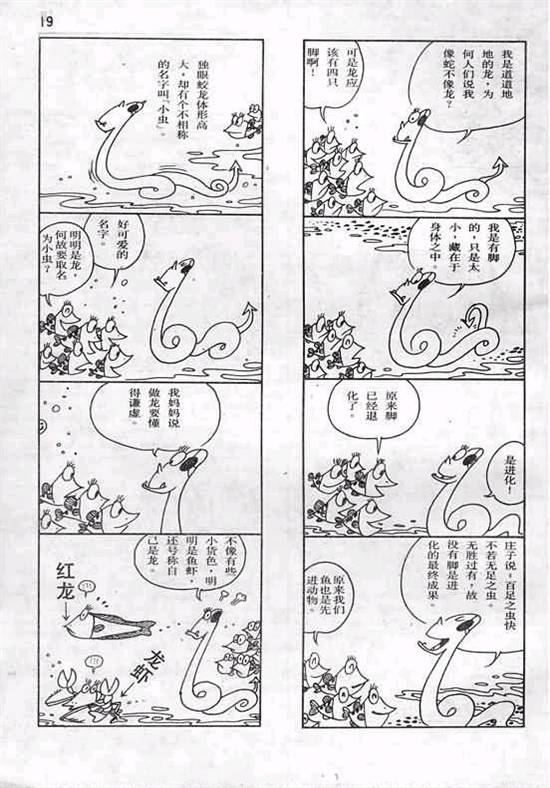 19
我是道道地
地的龙，为
何人们说我
像蛇不像龙？
可是龙应
该有四只
脚啊！
我是有脚
的，只是太
小，藏在于
身体之中。
原来脚
已经退
化了。
是进化！
庄子说：百足之虫快
不若无足之虫。
无胜过有，故
没有脚是进
化的最终成果。
原来我们
鱼也是先
进动物。
独眼蛟龙体形高
大，却有个不相称
的名字叫「小虫」
好可爱的
名字。
明明是龙，
何故要取名
为小虫？
我妈妈说
做龙要懂
得谦虚。
不像有些
小货色，明
明是鱼虾，
还号称自
己是龙。
红龙
!!!
龙虾
!!!